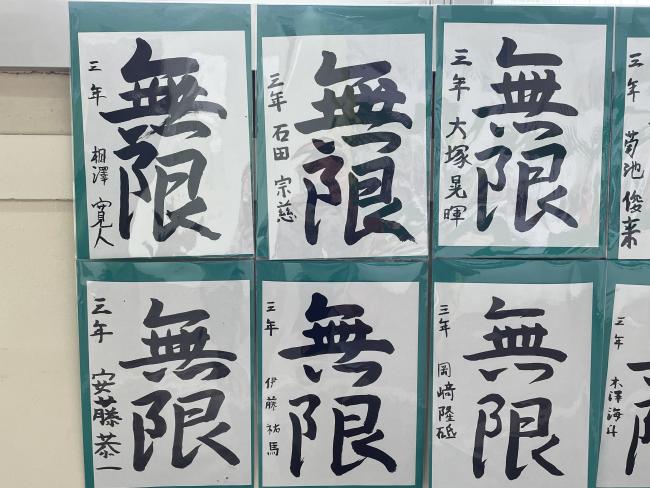 無限
三年 相澤 寛人
無限
三年 石田 宗慈
無限
三年 大塚晃暉
三年 菊池 俊来
無限
三年 安藤恭一
無限
三年 伊藤 祐馬
無限
三年 岡﨑隆砥
三年 木澤海斗